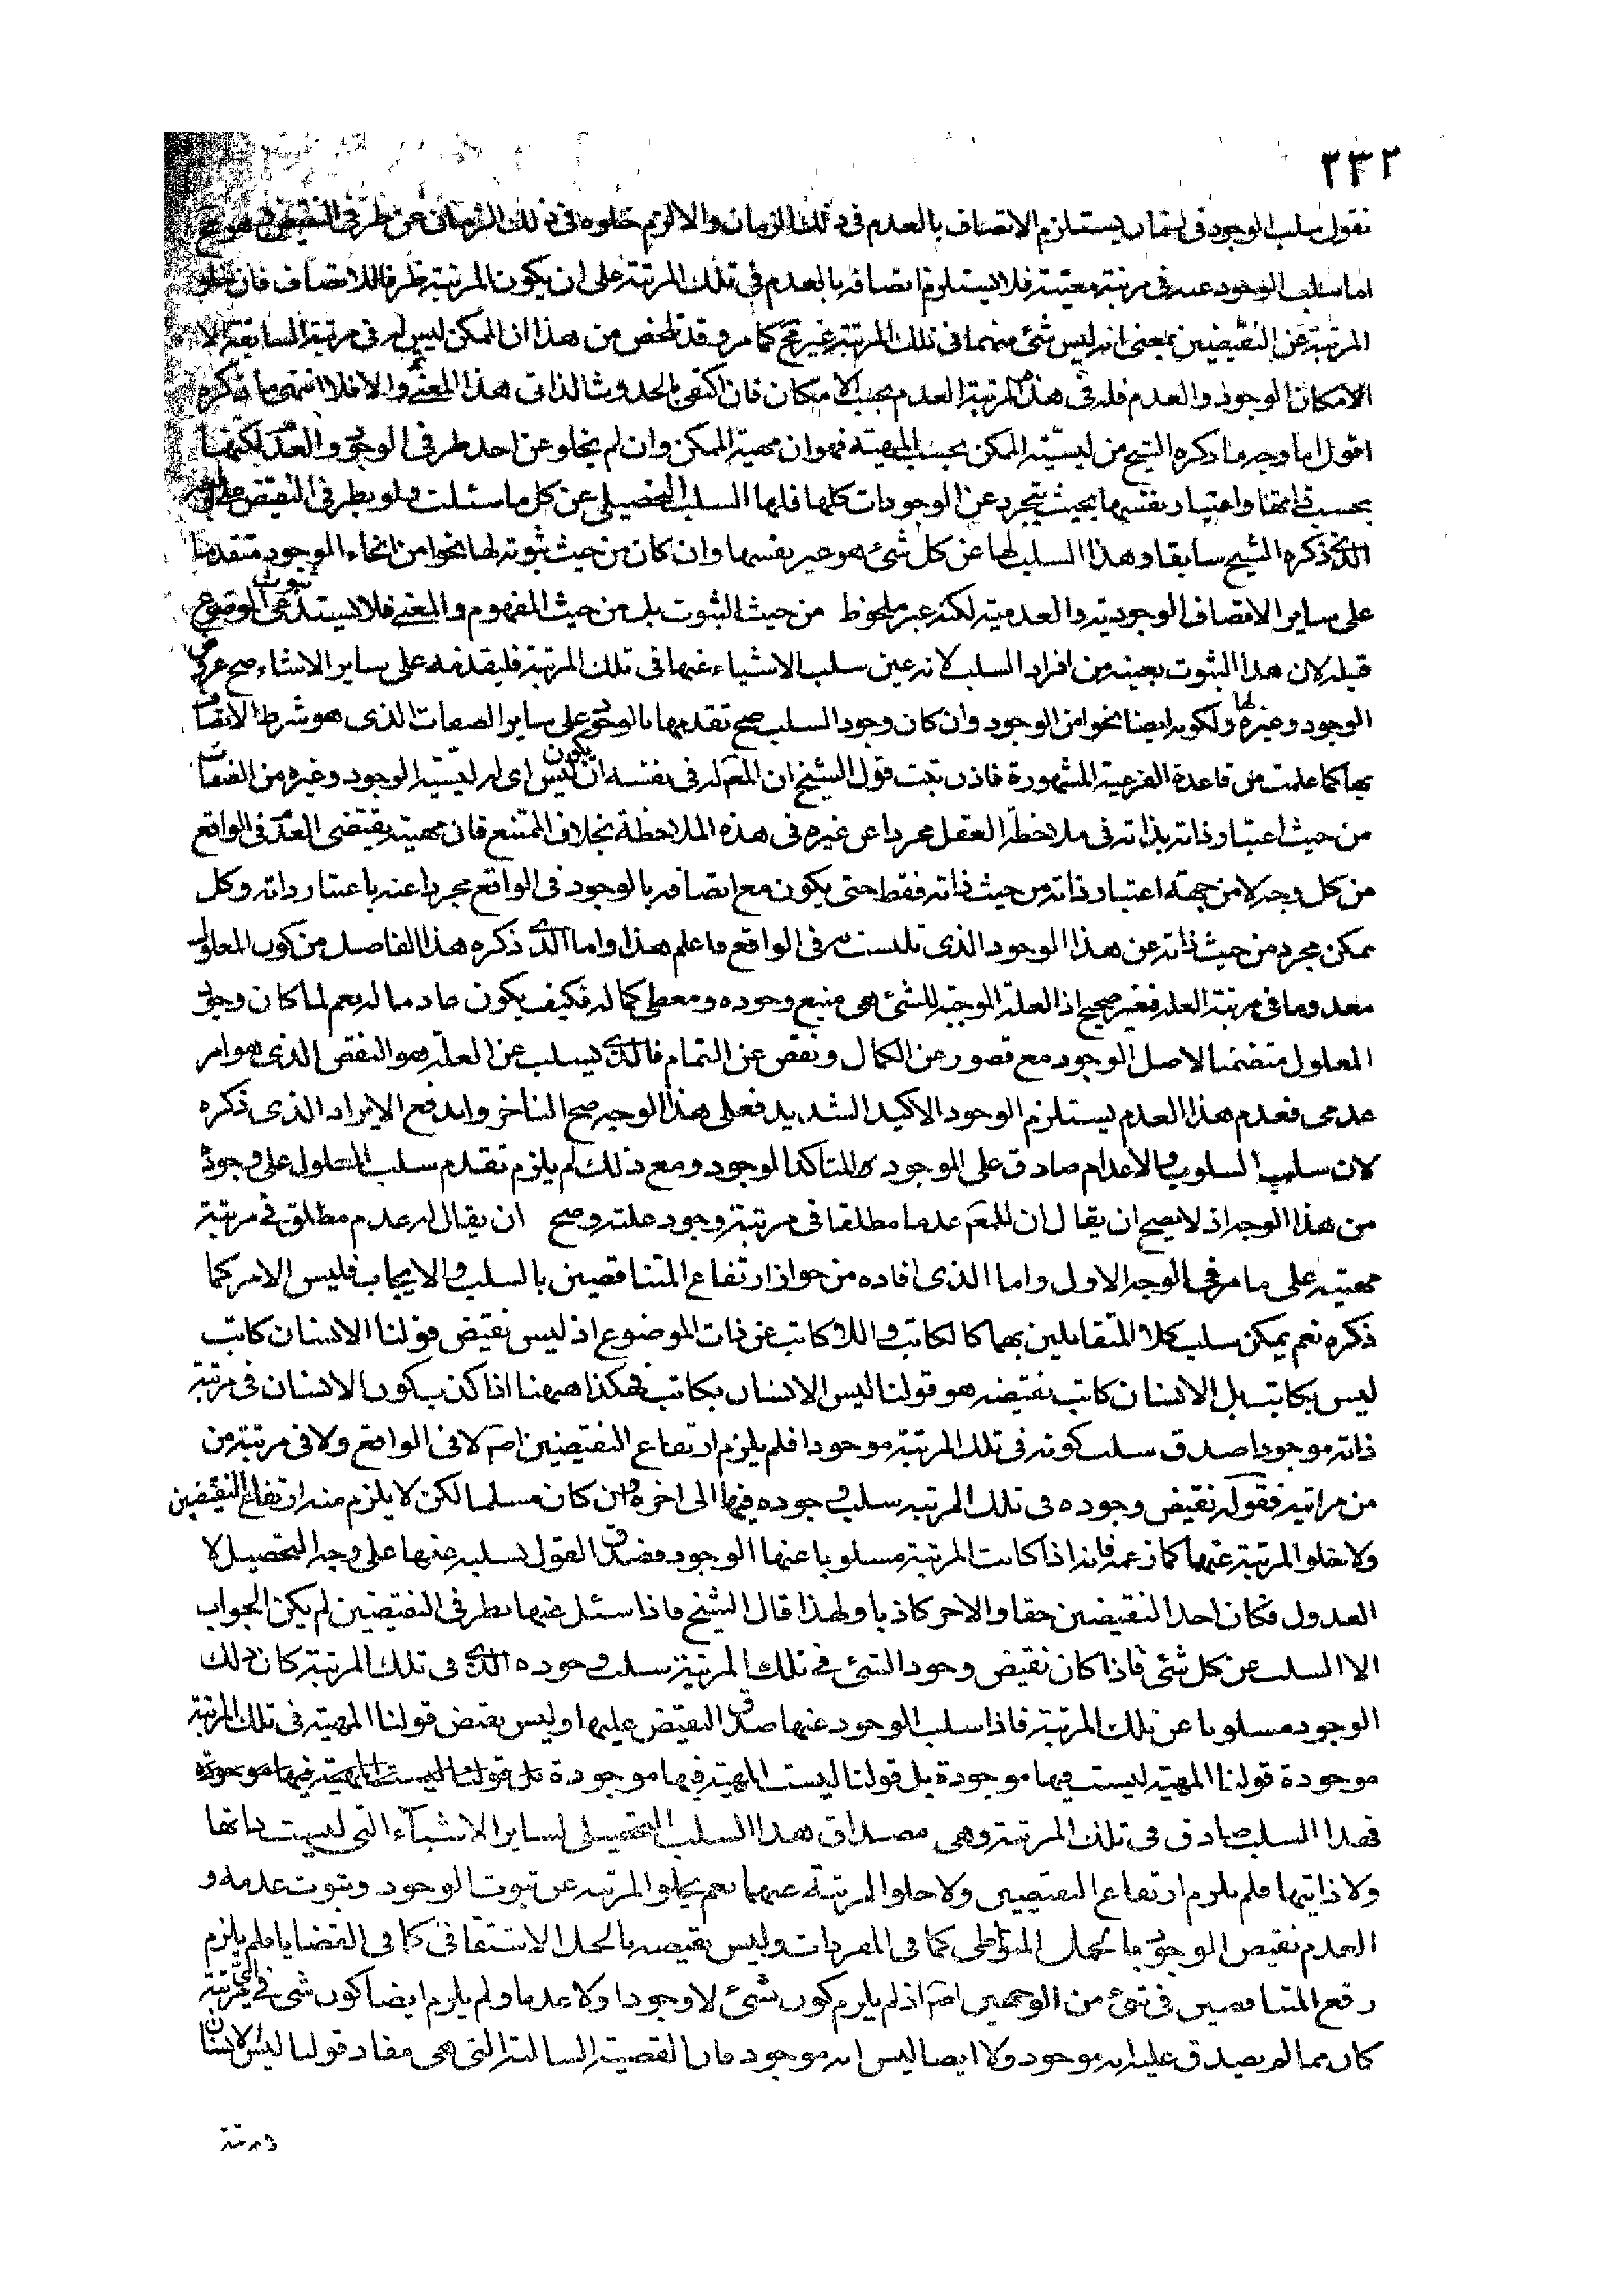 ٢٣٢
نقول سلب الوجود فى زمان يستلزم الاتصاف بالعدم فى ذلك الزمان والا لزم خلوه فى ذلك الزمان عن طرفى النقيض وهو مح
اما سلب الوجود عنه فى مرتبة معينة فلا يستلزم اتصافه بالعدم فى تلك المرتبة على ان يكون المرتبة ظرفا للاتصاف فان خلو
المرتبة عن النقيضين بمعنى انه ليس شئ منهما فى تلك المرتبة غير مح كما مر وقد تلخص من هذا ان الممكن ليس له فى مرتبة السابقة الا
الامكان الوجود والعدم فله فى هذه المرتبة العدم بحسب الامكان فان اكتفى بالحدوث الذاتى هذا المعنى والا فلا انتهى ما ذكره
اقول اما وجه ما ذكره الشيخ من ليسية الممكن بحسب المهية فهو ان مهية الممكن وان لم يخلو عن احد طرفى الوجود والعدم لكنها
بحسب ذاتها واعتبار نفسها بحيث يتجرد عن الوجودات كلها فلها السلب التحصيلى عن كل ما سئلت ولو بطرفى النقيض على
الذى ذكره الشيخ سابقا وهذا السلب لها عن كل شئ هو غير نفسها وان كان من حيث ثبوته لها نحوا من انحاء الوجود متقدما
على ساير الاتصاف الوجودية والعدمية لكنه غير ملحوظ من حيث الثبوت بل من حيث المفهوم والمعنى فلا يستدعى ثبوت الموضوع
قبله لان هذا الثبوت بعينه من افراد السلب لانه عين سلب الاشياء عنها فى تلك المرتبة فليقدمه على ساير الاشياء صح عروض
الوجود وغيره لها ولكونه ايضا نحوا من الوجود وان كان وجود السلب صح تقدمها بالوجود على ساير الصفات الذى هو شرط الاتصاف
بها كما علمت من قاعدة الفرعية المشهورة فاذن ثبت قول الشيخ ان المعلول له فى نفسه ان يكون ليس اى له ليسية الوجود وغيره من الصفات
من حيث اعتبار ذاته بذاته فى ملاحظة العقل مجردا عن غيره فى هذه الملاحظة بخلاف الممتنع فان مهيته يقتضى العدم فى الواقع
من كل وجه لا من جهة اعتبار ذاته من حيث ذاته فقط حتى يكون مع اتصافه بالوجود فى الواقع مجردا عنه باعتبار ذاته وكل
ممكن مجرد من حيث ذاته عن هذا الوجود الذى تلبست به فى الواقع فاعلم هذا واما الذى ذكره هذا الفاضل من كون المعلول
معدوما فى مرتبة العلة فغير صحيح اذ العلة الموجبة للشئ هى منبع وجوده ومعطى كماله فكيف يكون عادما له نعم لما كان وجود
المعلول متضمنا لاصل الوجود مع قصور عن الكمال ونقص عن التمام فالذى يسلب عن العلة هو النقص الذى هو امر
عدمى فعدم هذا العدم يستلزم الوجود الاكيد الشديد فعلى هذا الوجه صح التاخر واندفع الايراد الذى ذكره
لان سلب السلوب والاعدام صادق على الموجود المتاكد الوجود ومع ذلك لم يلزم تقدم سلب المعلول على وجوده
من هذا الوجه اذ لا يصح ان يقال ان للمعلول عدما مطلقا فى مرتبة وجود علته وصح ان يقال له عدم مطلق فى مرتبة
مهيته على ما مر فى الوجه الاول واما الذى افاده من جواز ارتفاع المتناقضين بالسلب والايجاب فليس الامر كما
ذكره نعم يمكن سلب كلا المتقابلين بهما كالكاتب واللاكاتب عن ذات الموضوع اذ ليس نقيض قولنا الانسان كاتب
ليس بكاتب بل الانسان كاتب نقيضه هو قولنا ليس الانسان بكاتب فهكذا ههنا اذا كذب كون الانسان فى مرتبة
ذاته موجودا صدق سلب كونه فى تلك المرتبة موجودا فلم يلزم ارتفاع النقيضين اصلا لا فى الواقع ولا فى مرتبة من
من مراتبه فقوله نقيض وجوده فى تلك المرتبة سلب وجوده فيها الى اخره وان كان مسلما لكن لا يلزم منه ارتفاع النقيضين
ولا خلو المرتبة عنهما كما زعمه فانه اذا كانت المرتبة مسلوبا عنها الوجود فصدق القول بسلبه عنها على وجه التحصيل لا
العدول فكان احد النقيضين حقا والاخر كاذبا ولهذا قال الشيخ فاذا سئل عنها بطرفى النقيضين لم يكن الجواب
الا السلب عن كل شئ فاذا كان نقيض وجود الشئ فى تلك المرتبة سلب وجوده الذى فى تلك المرتبة كان ذلك
الوجود مسلوبا عن تلك المرتبة فاذا سلب الوجود عنها صدق النقيض عليها وليس نقيض قولنا المهية فى تلك المرتبة
موجودة قولنا المهية ليست فيها موجودة بل قولنا ليست المهية فيها موجودة بل قولنا ليست المهية فيها موجودة
فهذا السلب صادق فى تلك المرتبة وهى مصداق هذا السلب التحصيلى لساير الاشياء التى ليست ذاتها
ولا ذاتيها فلم يلزم ارتفاع النقيضين ولا خلو المرتبة عنهما نعم يخلو المرتبة عن ثبوت الوجود وثبوت عدمه و
العدم نقيض الوجود بالحمل المتواطى كما فى المفردات وليس نقيضه بالحمل الاشتقاقى كما فى القضايا فلم يلزم
رفع المتناقضين فى شئ من الوجهين اصلا اذ لم يلزم كون شئ لا وجودا ولا عدما ولم يلزم ايضا كون شئ فى اى مرتبة
كان مما لم يصدق عليه انه موجود ولا ايضا ليس انه موجود فان القضية السالبة التى هى مفاد قولنا ليس الانسان